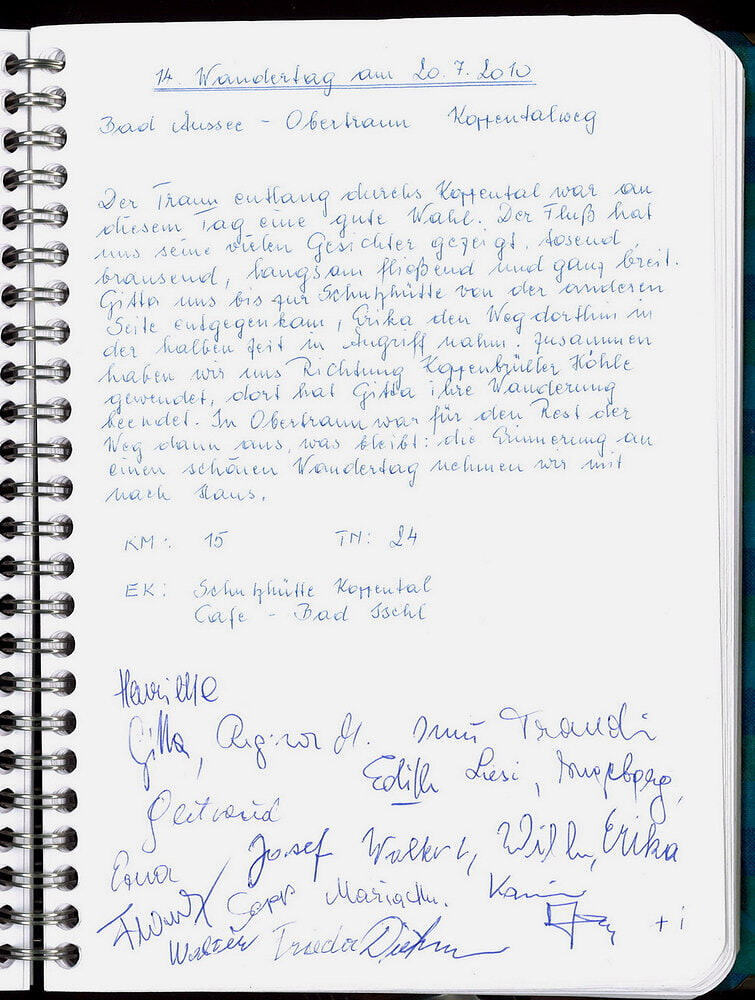 14. Wandertag am 20.7.2010
Bad Aussee - Obertraun Koppentalweg
Der Traun entlang durchs Koppental war an
diesem Tag eine gute Wahl. Der Fluß hat
uns seine vielen Gesichter gezeigt, tosend,
brausend, langsam fließend und ganz breit.
Gitta uns bis zur Schutzhütte von der anderen
Seite entgegenkam, Erika den Weg dorthin in
der halben Zeit in Angriff nahm. Zusammen
haben wir uns Richtung Koppenbrüller Höhle
gewendet, dort hat Gitta ihre Wanderung
beendet. In Obertraun war für den Rest der
Weg dann aus, was bleibt: die Erinnerung an
einen schönen Wandertag nehmen wir mit
nach Haus.
KM: 15 TN: 24
EK: Schutzhütte Koppental
Cafe - Bad Ischl
Gitta, Traudi
Edith Liesi, Ingeborg,
Gertraud
Josef Walter, Erika
Erna
Sepp
Walter
+ i